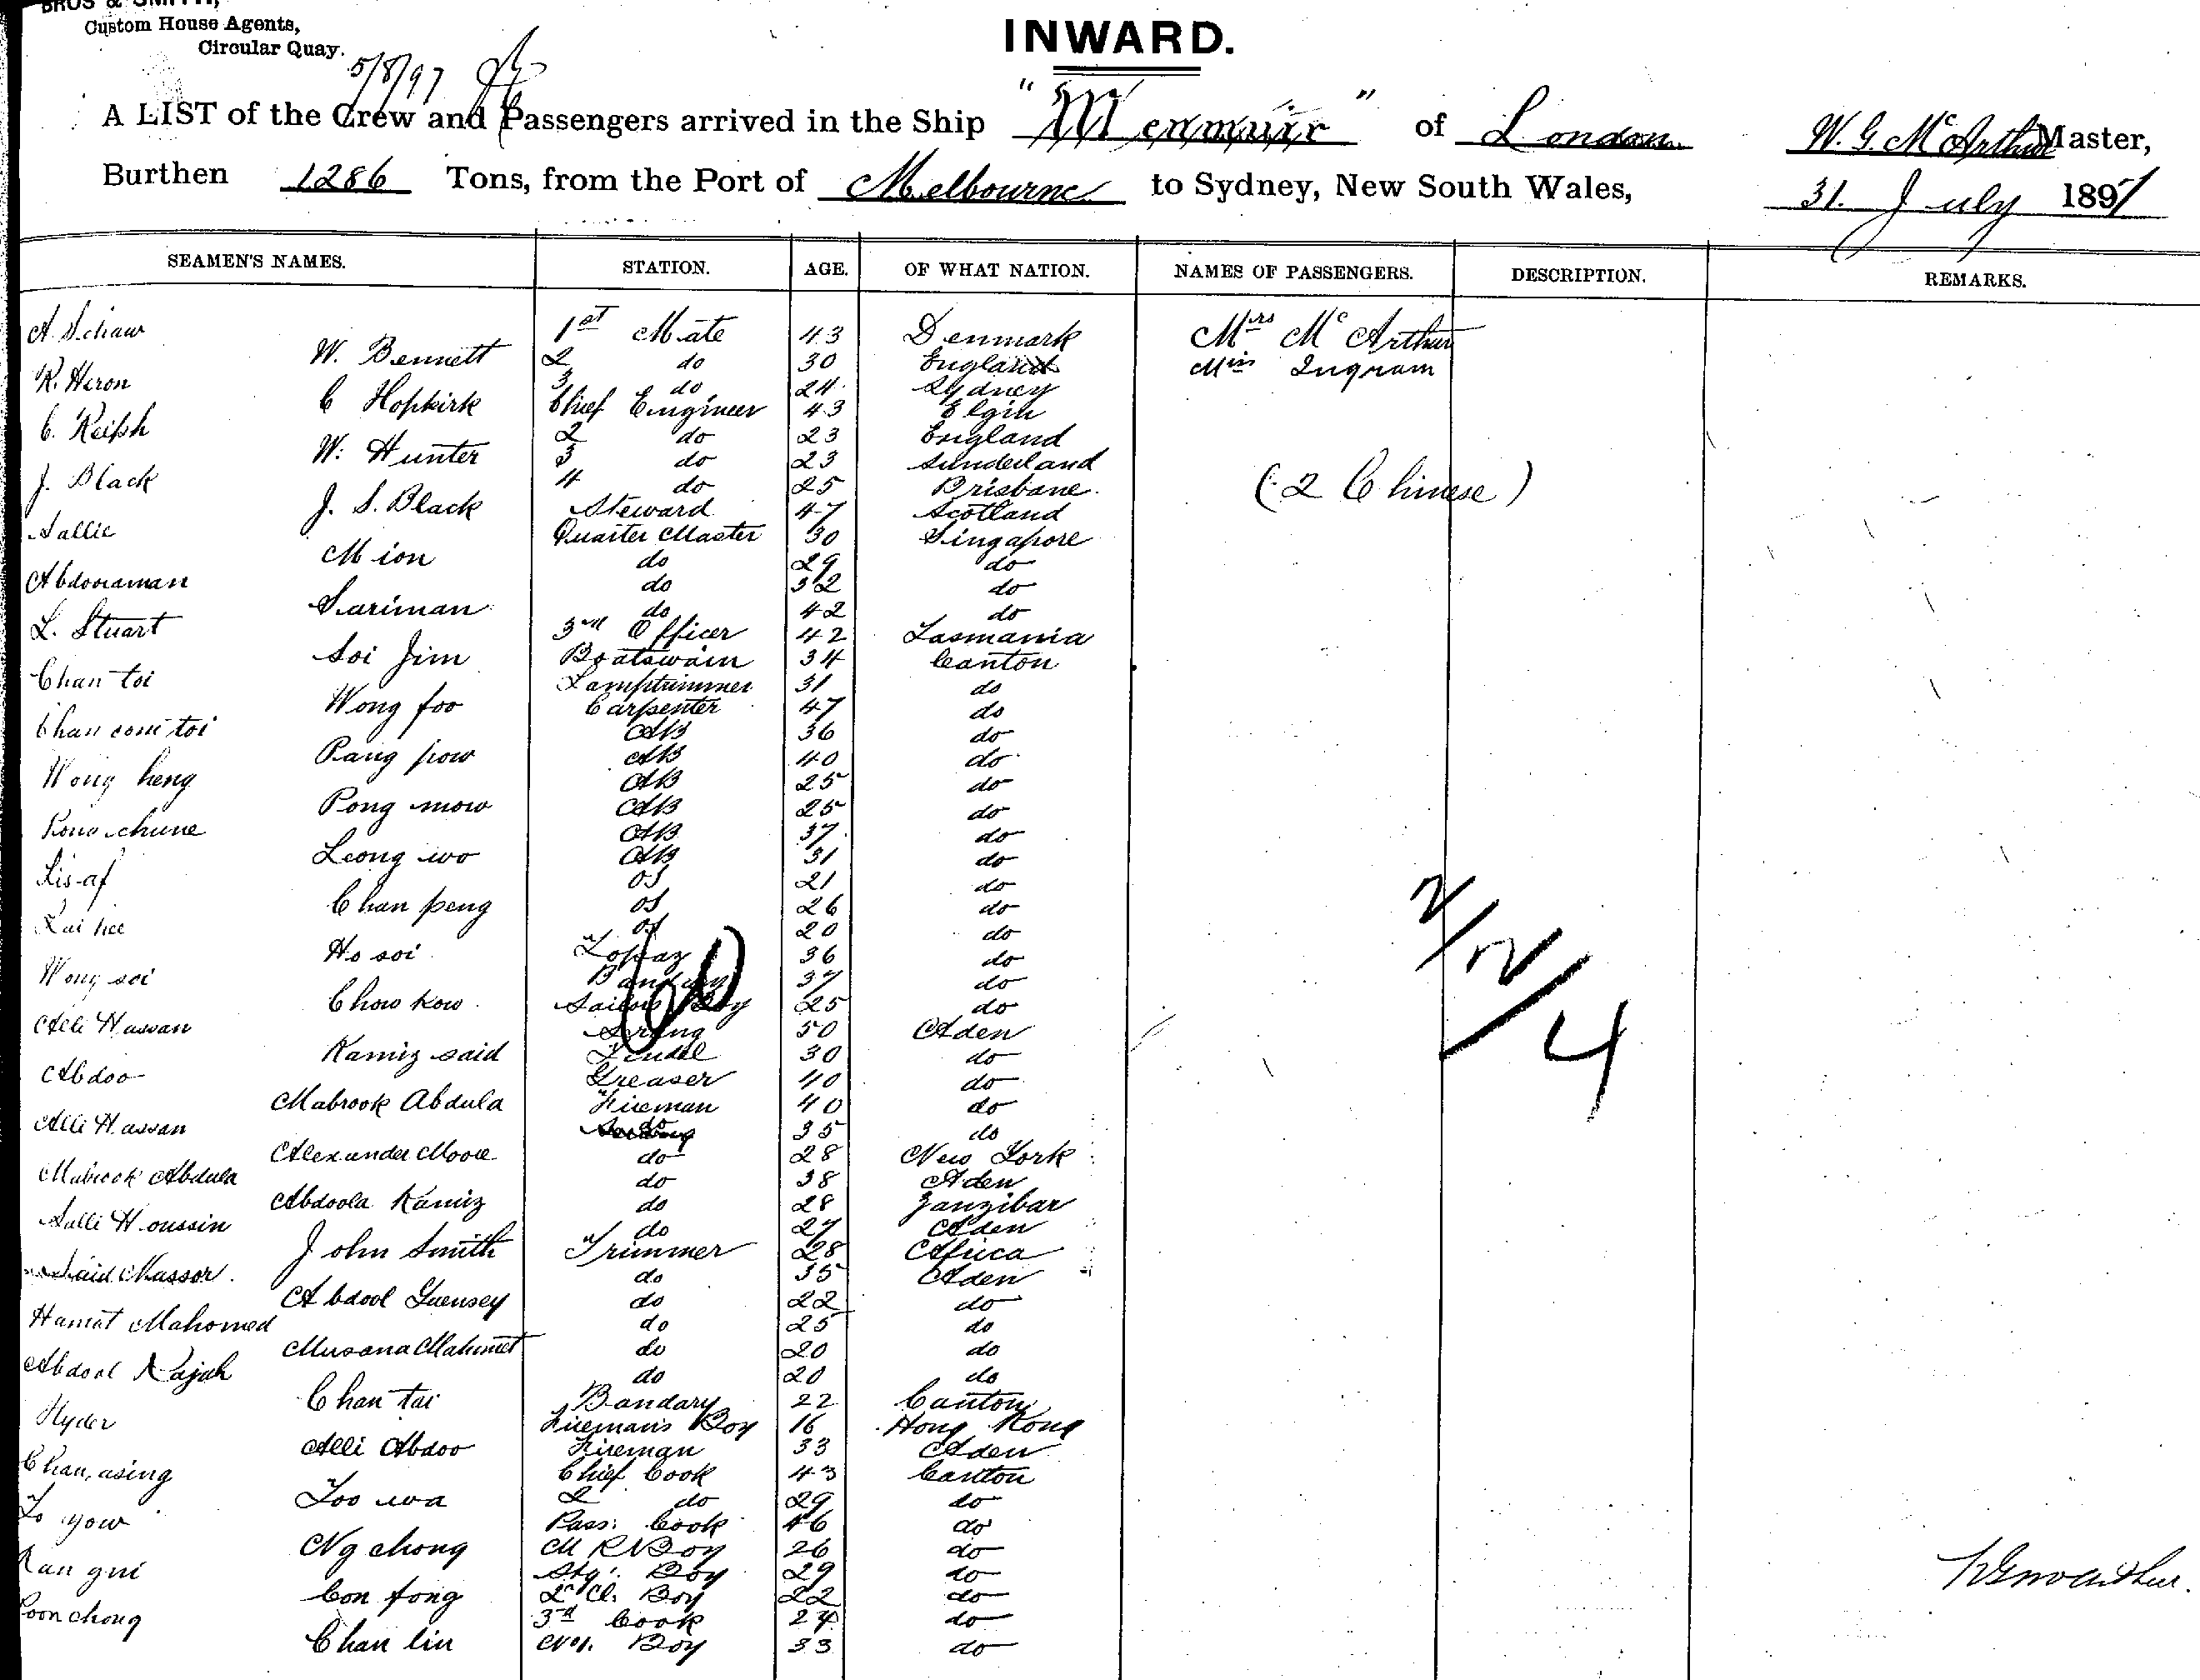 BROS & SMITH,
Custom House Agents,
Circular Quay.
5/8/97
INWARD.
A LIST of the Crew and Passengers arrived in the Ship "Menmuir" of London W. G. McArthur Master,
Burthen 1286 Tons, from the Port of Melbourne to Sydney, New South Wales, 31. July 1897
SEAMEN'S NAMES. STATION. AGE. OF WHAT NATION. NAMES OF PASSENGERS. DESCRIPTION. REMARKS.
A. Schaw 1st Mate 43 Denmark Mrs McArthur
W. Bennett 2 do 30 England Miss Ingram
R. Heron 3 do 24 Sydney
C Hopkirk Chief Engineer 43 Elgin
C. 2 do 23 England
W. Hunter 3 do 23 Sunderland
J. Black 4 do 25 Brisbane
J. S. Black Steward 47 Scotland (2 Chinese)
Sallie Quarter Master 30 Singapore
Mion do 29 do
Abdooraman do 32 do
Sariman do 42 do
L. Stuart 3rd Officer 42 Tasmania
Soi Jim Boatswain 34 Canton
Chan toi Lamptrimmer 31 do
Wong foo Carpenter 47 do
Chan toi AB 36 do
Pang pow AB 40 do
Wong heng AB 25 do
Pong mow AB 25 do
chune AB 37 do
Leong wo AB 31 do
OS 21 do
Chan peng OS 26 do
OS 20 do
Ho soi Topaz 36 do
Wong soi Bandary 37 do
Chow kow Sailors Boy 25 do
Alli Hassan Serang 50 Aden
Kamiz said Tindal 30 do
Abdoo Greaser 40 do
Mabrook Abdula Fireman 40 do
Alli Hassan do 35 do
Alexander Moore do 28 New York
Mabrook Abdula do 38 Aden
Abdoola Kamiz do 28 Zanzibar
Salli Houssin do 27 Aden
John Smith Trimmer 28 Africa
Said Massor do 35 Aden
Abdool Guensey do 22 do
Hamat Mahomed do 25 do
Musana Mahmet do 20 do
Abdool Rajah do 20 do
Chan tai Bandary 22 Canton
Hyder Fireman's Boy 16 Hong Kong
Alli Abdoo Fireman 33 Aden
Chan asing Chief Cook 43 Canton
Foo wa 2 do 29 do
yow Pass: Cook 46 do
Ng chong M R Boy 26 do
Kan gui Stg: Boy 29 do
Con fong 2nd Cl. Boy 22 do
Poon chong 3rd Cook 24 do
Chan lin Boy 33 do
W G McArthur.